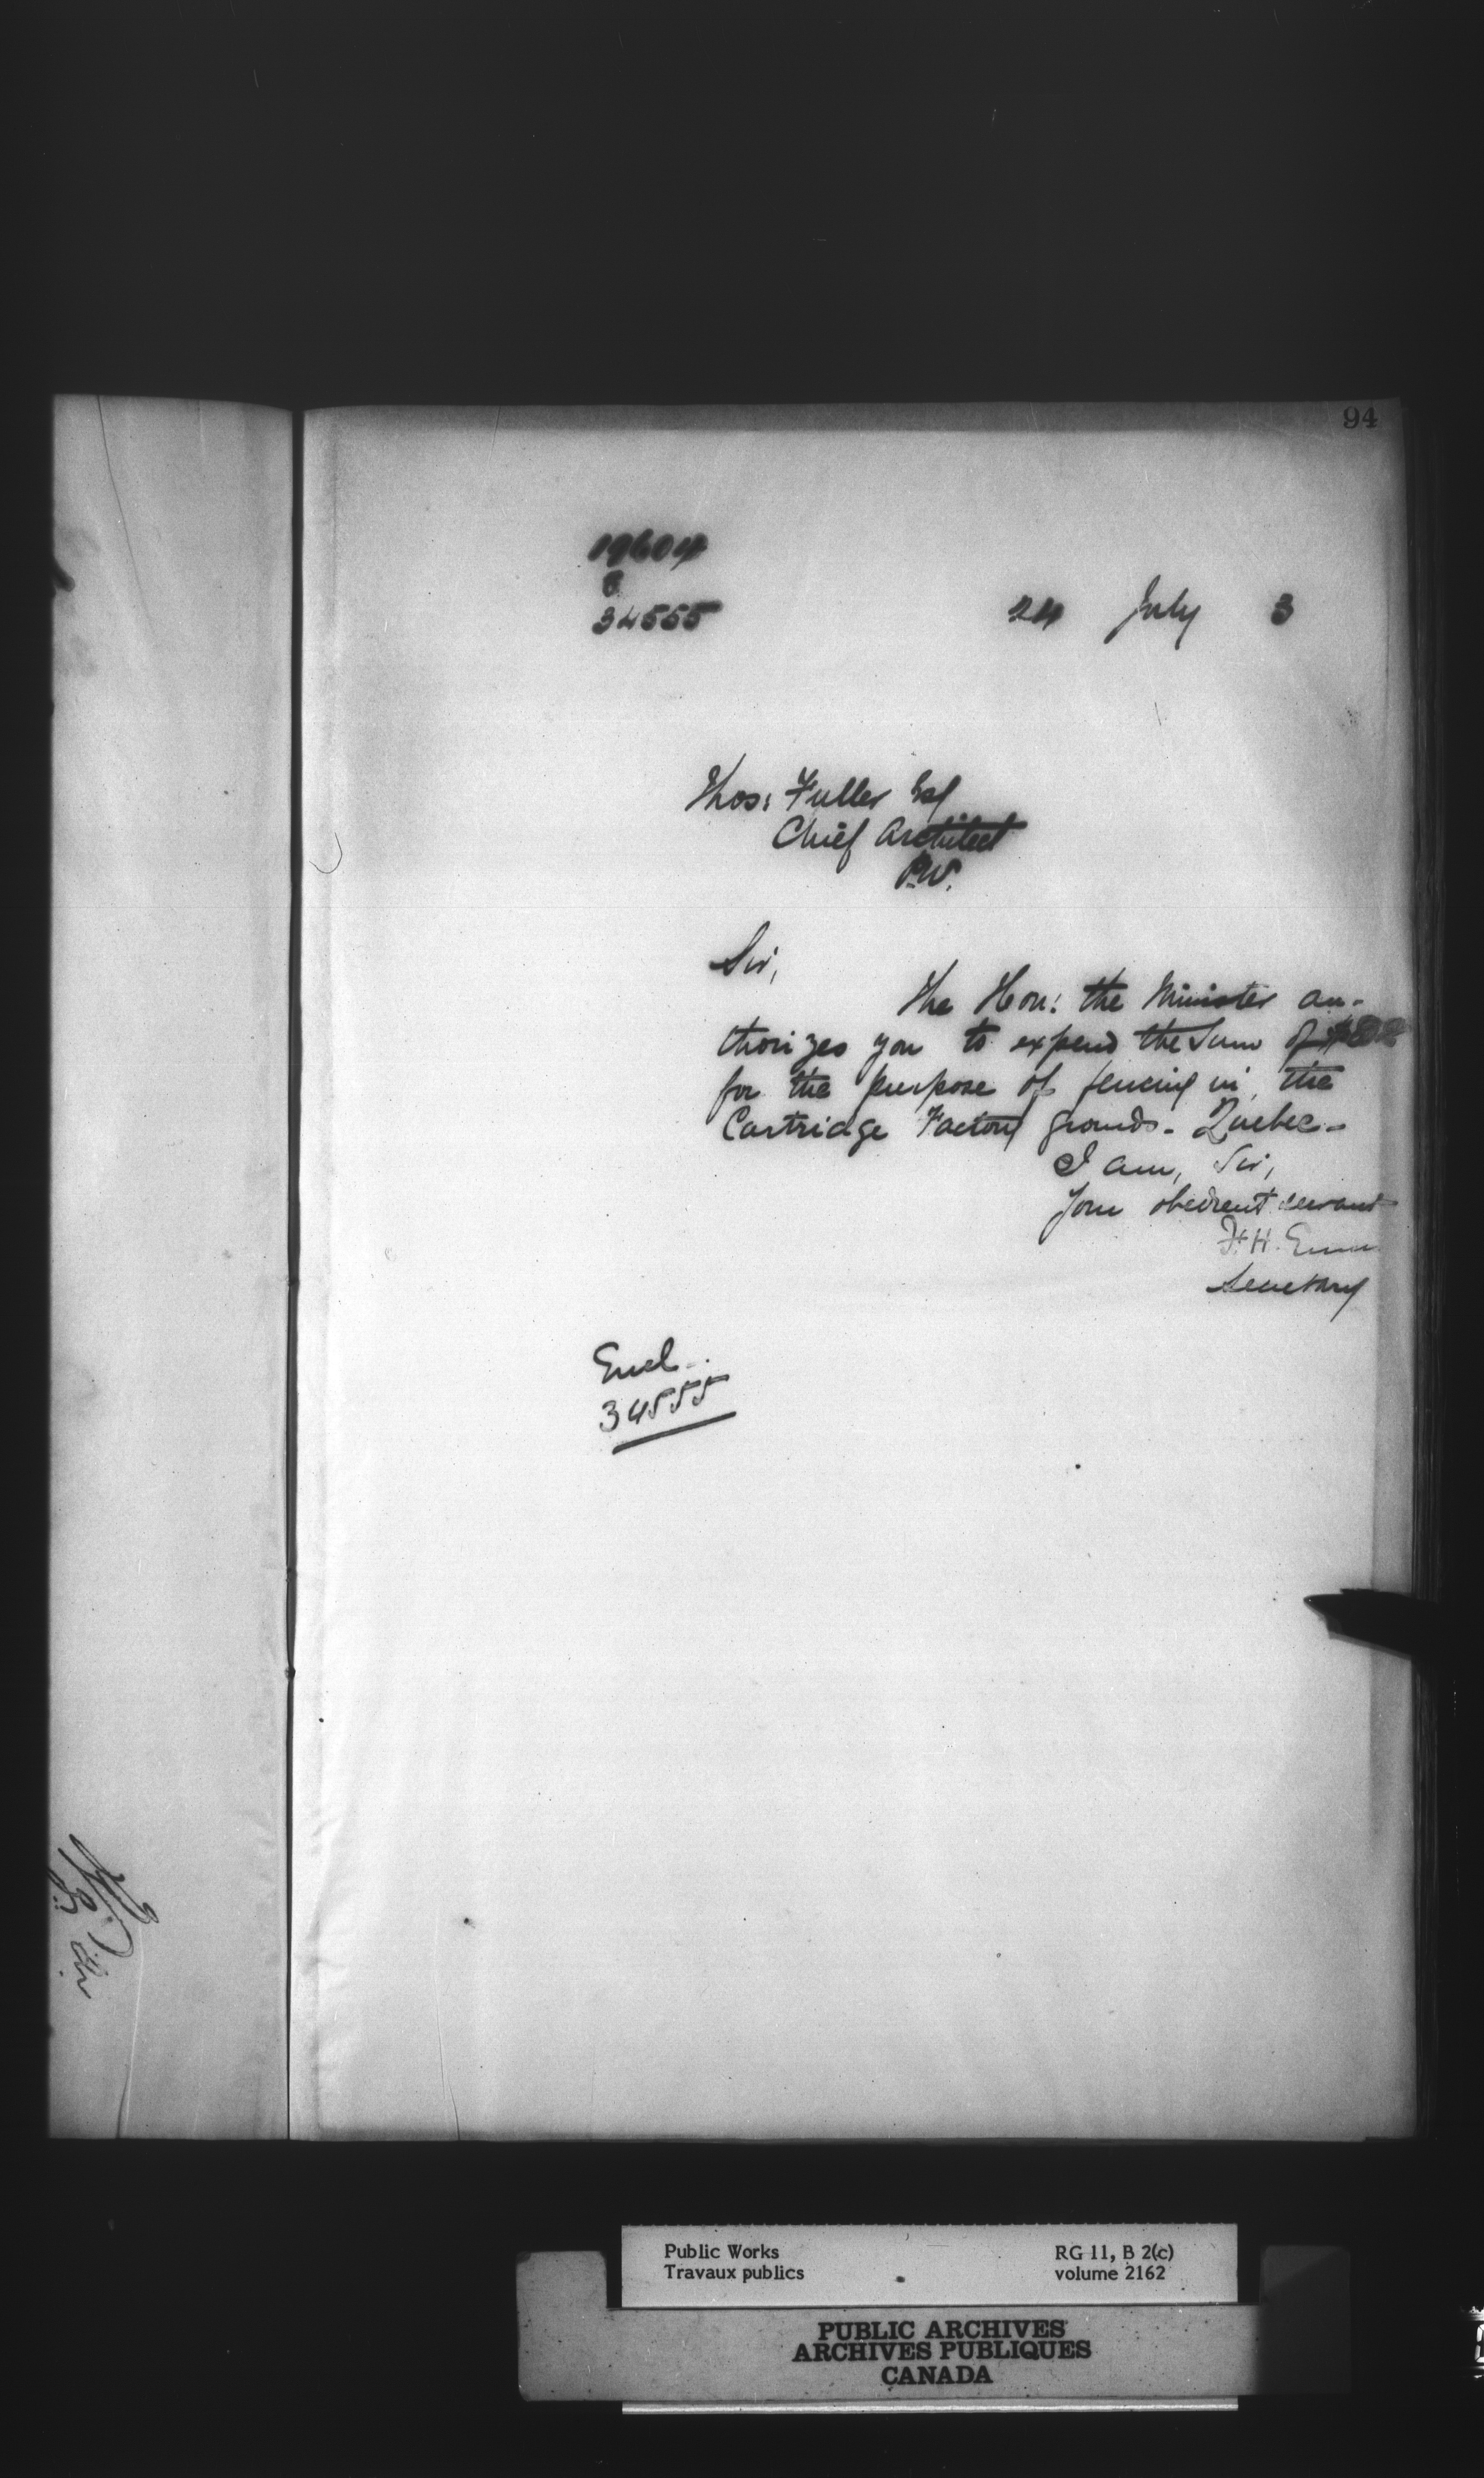 94
19604
8
34555
24 July 3
Thos: Fuller Esq
Chief Architect
P.W.
Sir,
The Hon: the Minister au-
thorizes you to expend the Sum of
for the purpose of fencing in, the
Cartridge Factory grounds. Quebec.
I am, Sir,
Your obedient servant
F. H. Ennis
Secretary
Encl.
34555
Public Works
Travaux publics
RG 11, B 2(c)
volume 2162
PUBLIC ARCHIVES
ARCHIVES PUBLIQUES
CANADA